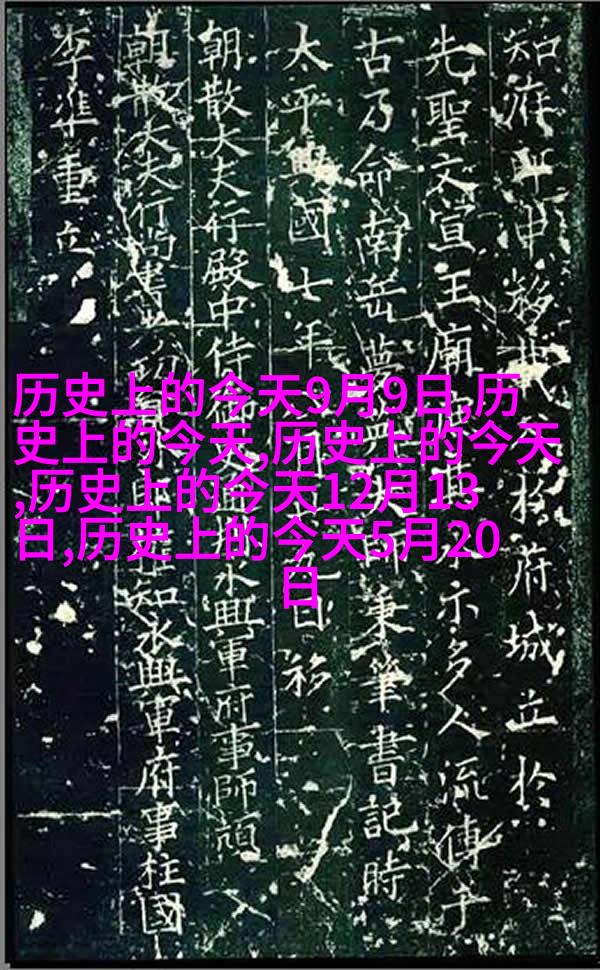 知府郎中移於府城立於
先聖文宣王廟示多人流傳千
古乃命南岳夢師秉筆書記時
太平興國七年月日移
朝散大夫行殿中侍御永興軍府事師頏
朝散大夫行尚書知永興軍府事柱國
李準重立
历史上的今天9月9日,历
史上的今天,历史上的今天
,历史上的今天12月13
日,历史上的今天5月20
日